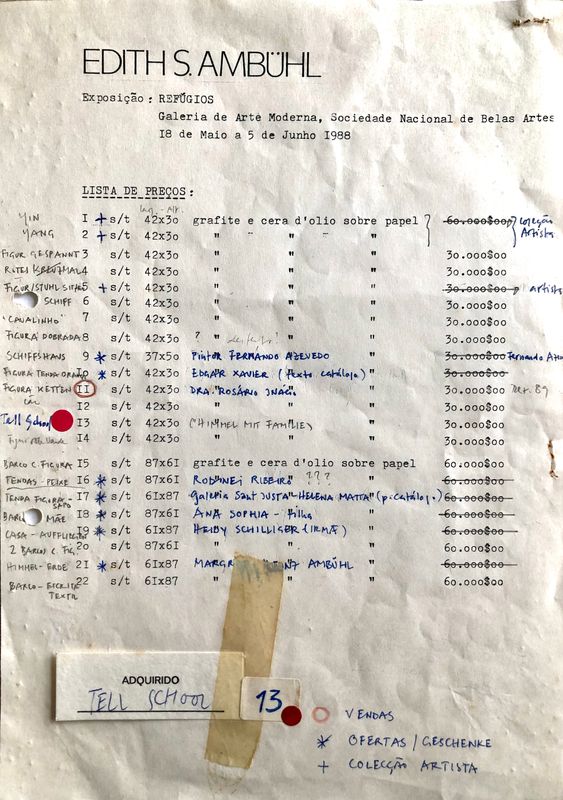 EDITH S. AMBÜHL
Exposição : REFÚGIOS
Galeria de Arte Moderna, Sociedade Nacional de Belas Artes
I8 de Maio a 5 de Junho I988
LISTA DE PREÇOS :
YIN I + s/t 42x3o grafite e cera d'olio sobre papel 60.000$00 Coleção
YANG 2 + s/t 42x3o " " " " Artista
FIGUR GESPANNT 3 s/t 42x3o " " " " 30.000$00
4 s/t 42x3o " " " " 30.000$00
5 + s/t 42x3o " " " " 30.000$00 artista
SCHIFF 6 s/t 42x3o " " " " 30.000$00
"CAVALINHO" 7 s/t 42x3o " " " " 30.000$00
FIGURA DOBRADA 8 s/t 42x3o ? " " 30.000$00
SCHIFFSHAUS 9 * s/t 37x5o PINTOR FERNANDO AZEVEDO " 30.000$00 Fernando
FIGURA TENDA Io * s/t 42x3o EDGAR XAVIER (texto catálogo) " 30.000$00
FIGURA KETTEN II s/t 42x3o DRA. ROSÁRIO INÁCIO " 30.000$00
I2 s/t 42x3o " " " " 30.000$00
Tell School I3 s/t 42x3o (HIMMEL MIT FAMILIE) " 30.000$00
I4 s/t 42x3o " " " " 30.000$00
BARCO C. FIGURA I5 s/t 87x6I grafite e cera d'olio sobre papel 60.000$00
TENDAS - PEIXE I6 * s/t 87x6I RODINEI RIBEIRO ??? " 60.000$00
TENDA FIGURA SAPO I7 * s/t 6Ix87 galeria Sant Justa - HELENA MATTA (p. catálogo.) 60.000$00
BARCO MÃE I8 * s/t 87x6I ANA SOPHIA - filha " 60.000$00
CASA - I9 * s/t 6Ix87 HEIDY SCHILLIGER (IRMÃ) " 60.000$00
2 BARCOS C. FIG. 2o s/t 87x6I " " " " 60.000$00
HIMMEL - ERDE 2I * s/t 6Ix87 AMBÜHL " 60.000$00
BARCO - TEXTIL 22 s/t 6Ix87 " " " 60.000$00
ADQUIRIDO
TELL SCHOOL
13
VENDAS
* OFERTAS / GESCHENKE
+ COLECÇÃO ARTISTA